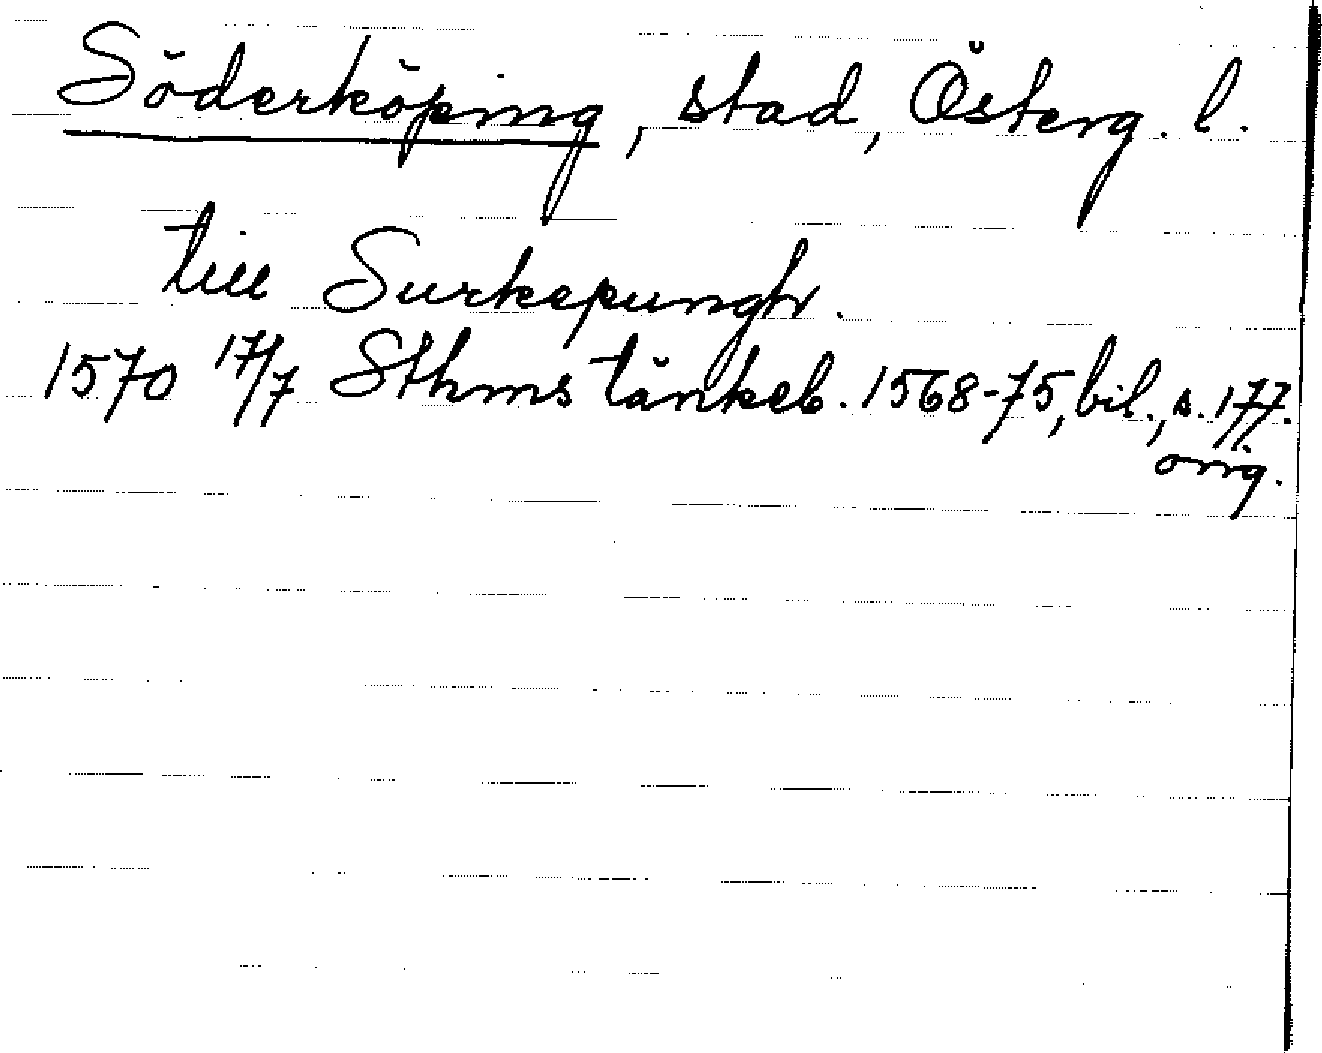 Söderköping, stad, Österg. l.
till Surkepungh.
1570 17/7 Sthms tänkeb. 1568-75, bil., s. 177.
orig.